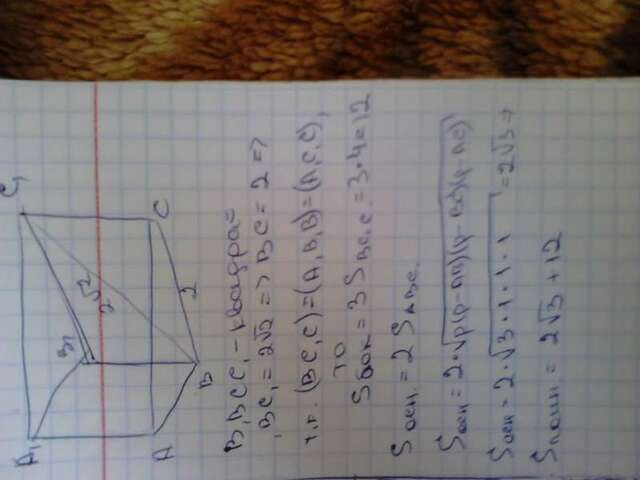 A₁
C₁
B₁
2√2
A
C
2
B
B₁BCC₁ - квадрат
BC₁ = 2√2 => BC = 2 =>
т.к. (BC₁C) = (A₁B₁B) = (A₁C₁C),
то
Sбок = 3 S BC₁C₁ = 3·4 = 12
Sосн. = 2 S ABC.
Sосн = 2·√p(p-AB)(p-BC)(p-AC)
Sосн = 2·√3·1·1·1 = 2√3 =>
Sполн. = 2√3 + 12